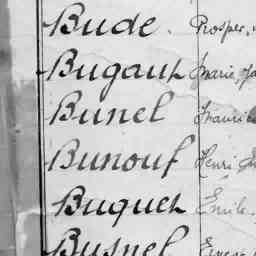 Bude. Prosper,
Bugault Marie,
Bunel
Bunouf Henri
Buquet Emile
Busnel